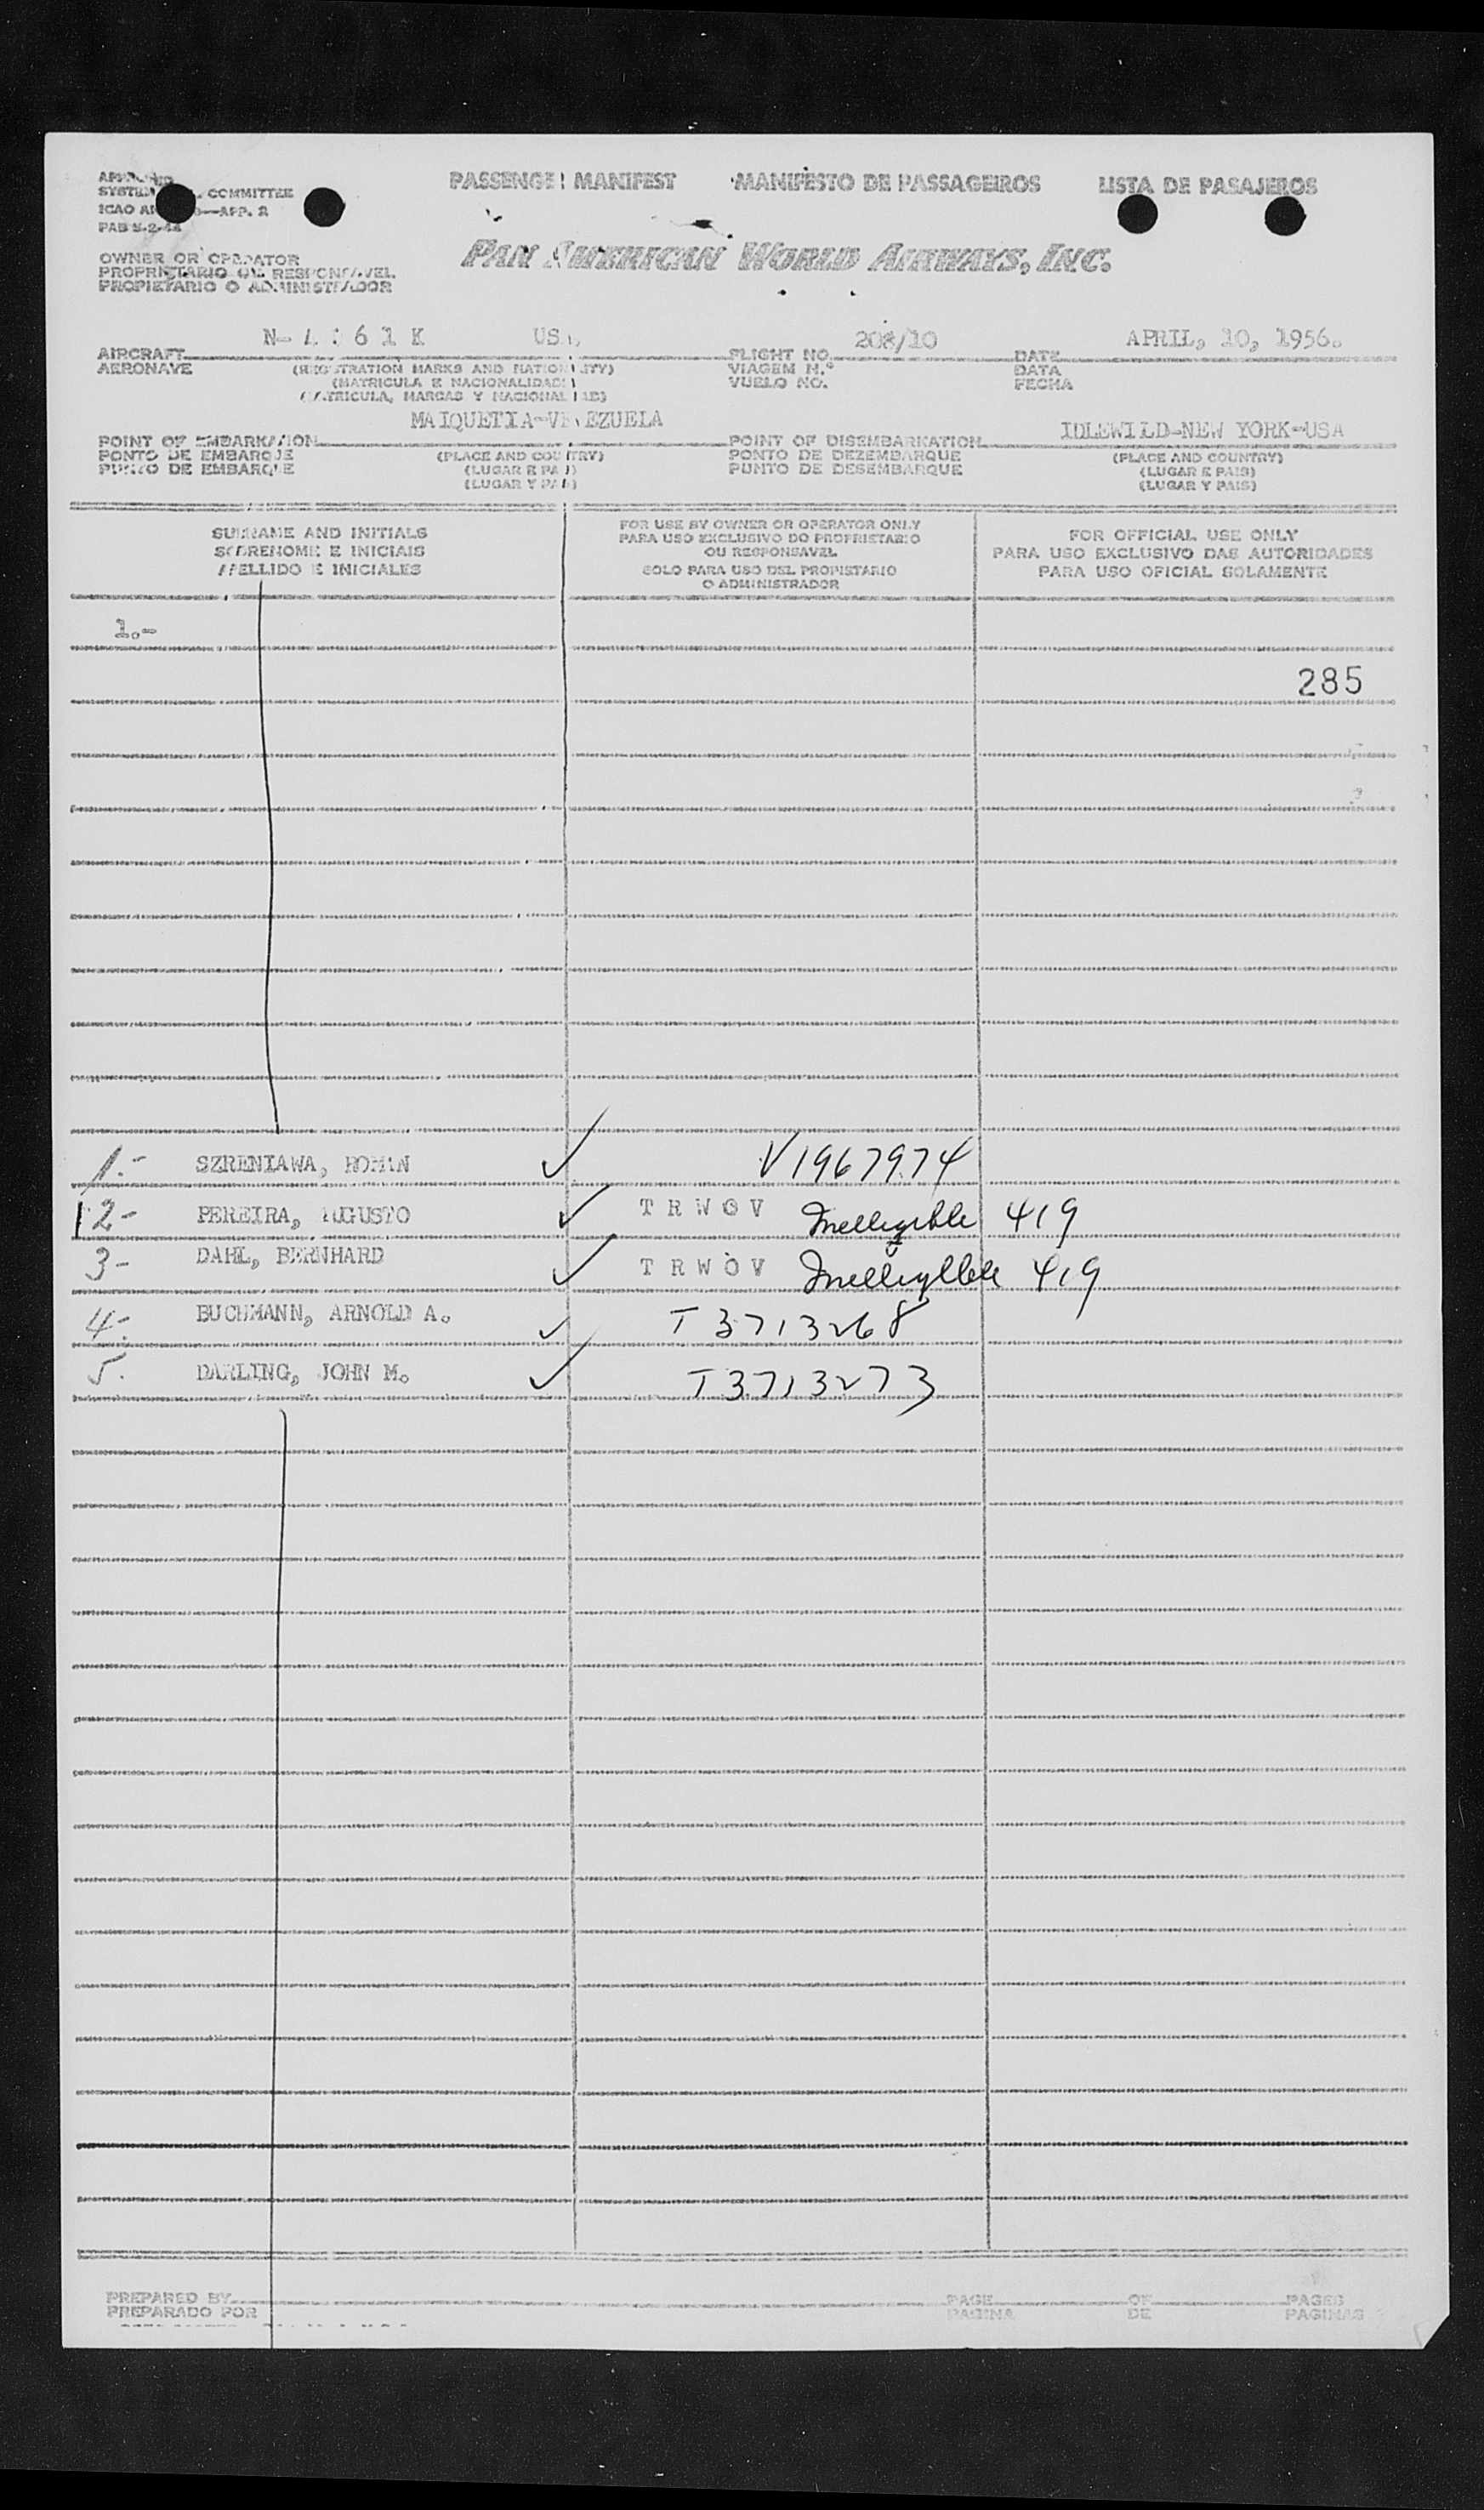 PASSENGER MANIFEST MANIFESTO DE PASSAGEIROS LISTA DE PASAJEROS
COMMITTEE
ICAO APP. 2
PAB
PAN AMERICAN WORLD AIRWAYS, INC.
OWNER OR OPERATOR
PROPRIETARIO OU RESPONSAVEL
PROPIETARIO O ADMINISTRADOR
USA, 208/10 APRIL, 10, 1956.
AIRCRAFT FLIGHT NO. DATE
AERONAVE (REGISTRATION MARKS AND NATIONALITY) VIAGEM N.º DATA
(MATRICULA E NACIONALIDADE) VUELO NO. FECHA
(MATRICULA, MARCAS Y NACIONALIDAD)
MAIQUETIA-VENEZUELA IDLEWILD-NEW YORK-USA
POINT OF EMBARKATION POINT OF DISEMBARKATION
PONTO DE EMBARQUE (PLACE AND COUNTRY) PONTO DE DEZEMBARQUE (PLACE AND COUNTRY)
PUNTO DE EMBARQUE (LUGAR E PAIS) PUNTO DE DESEMBARQUE (LUGAR E PAIS)
(LUGAR Y PAIS) (LUGAR Y PAIS)
SURNAME AND INITIALS
SOBRENOME E INICIAIS
APELLIDO E INICIALES
FOR USE BY OWNER OR OPERATOR ONLY
PARA USO EXCLUSIVO DO PROPRIETARIO
OU RESPONSAVEL
SOLO PARA USO DEL PROPIETARIO
O ADMINISTRADOR
FOR OFFICIAL USE ONLY
PARA USO EXCLUSIVO DAS AUTORIDADES
PARA USO OFICIAL SOLAMENTE
1.-
285
1.- SZRENIAWA, ROMAN ✓ V1967974
2- PEREIRA, AUGUSTO ✓ T R W O V Inelligible 419
3- DAHL, BERNHARD ✓ T R W O V 419
4- BUCHMANN, ARNOLD A. ✓ T3713268
5. DARLING, JOHN M. ✓ T3713273
PREPARED BY PAGE OF PAGES
PREPARADO POR PAGINA DE PAGINAS